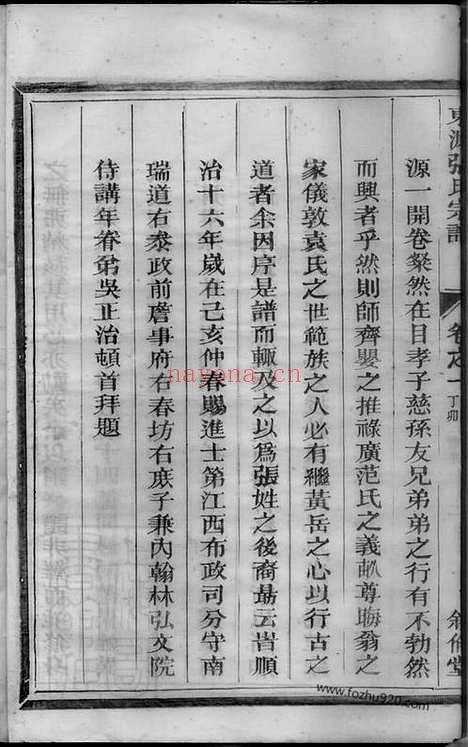 東源張氏宗譜
卷之一 丁卯
敘倫堂
源一開卷粲然在目孝子慈孫友兄弟弟之行有不勃然
而興者乎然則師齊嬰之推祿廣范氏之義畝尊晦翁之
家儀敦袁氏之世範族之人必有繼黃岳之心以行古之
道者余因序是譜而輒及之以爲張姓之後裔勗云旹順
治十六年歲在己亥仲春賜進士第江西布政司分守南
瑞道右叅政前詹事府右春坊右庶子兼內翰林弘文院
侍講年眷弟吳正治頓首拜題
nayona.cn
www.fozhu920.com